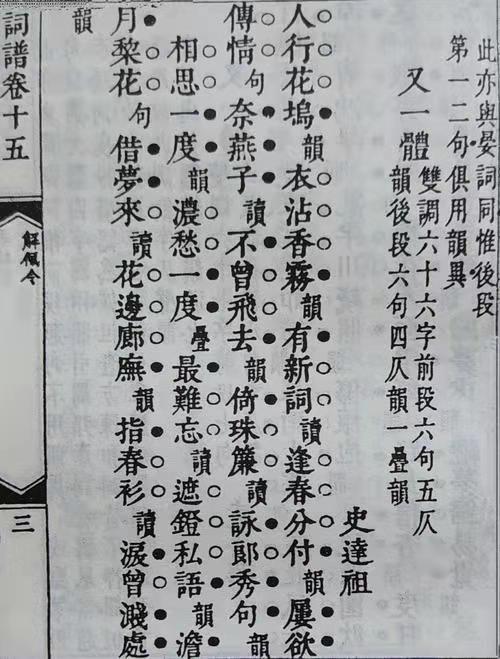 此亦與晏詞同惟後段
第一二句俱用韻異
又一體 雙調六十六字前段六句五仄
韻後段六句四仄韻一疊韻
史達祖
人行花塢韻衣沾香霧韻有新詞讀逢春分付韻屢欲
傳情句奈燕子讀不曾飛去韻倚珠簾讀詠郎秀句韻
相思一度韻濃愁一度疊最難忘讀遮鐙私語韻澹
月棃花句借夢來讀花邊廊廡韻指春衫讀淚曾濺處
韻
詞譜卷十五
解佩令
三